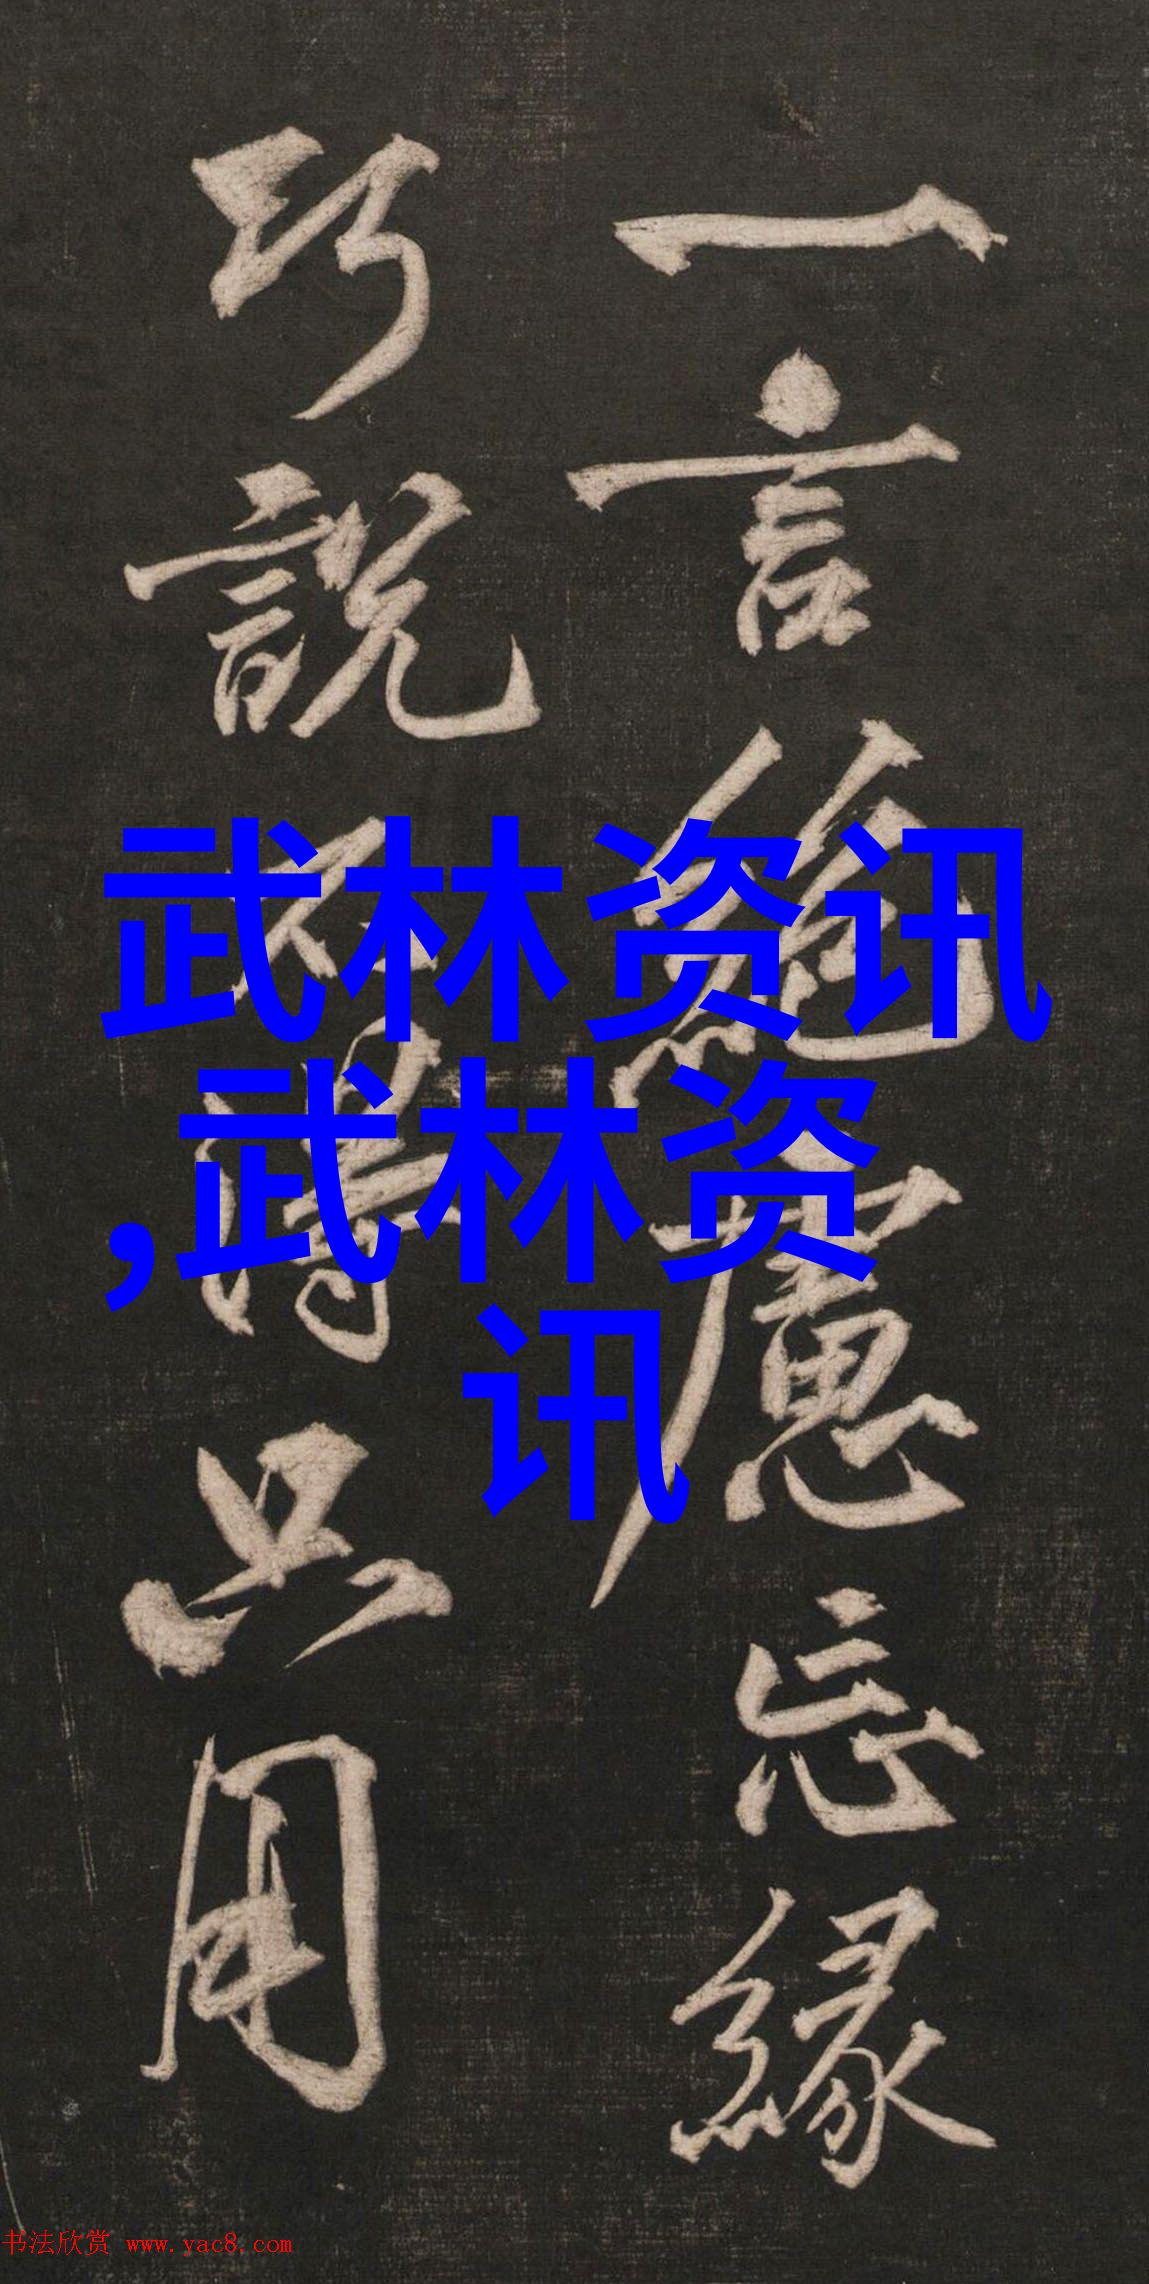 一言絶慮忘緣
巧說不得只用
武林资讯
,武林资
讯
书法欣赏 www.yac8.com